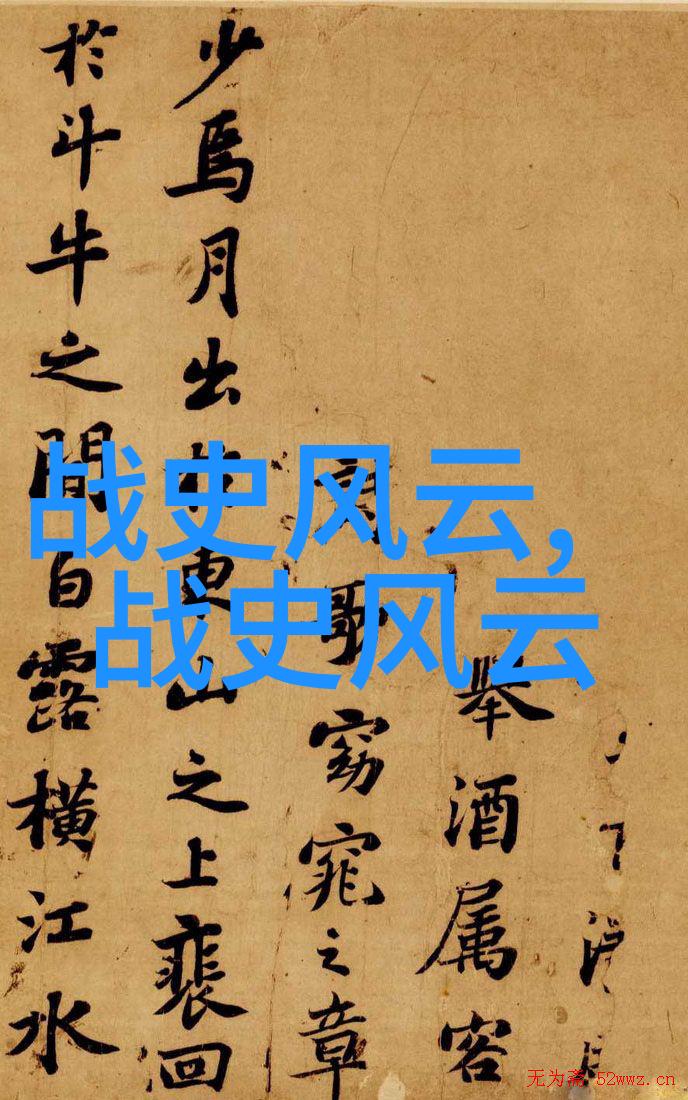 战史风云,
战史风云
舉酒属客
窈窕之章
少焉月出東山之上裴回
於斗牛之間白露橫江水
无为斋 52wwz.cn